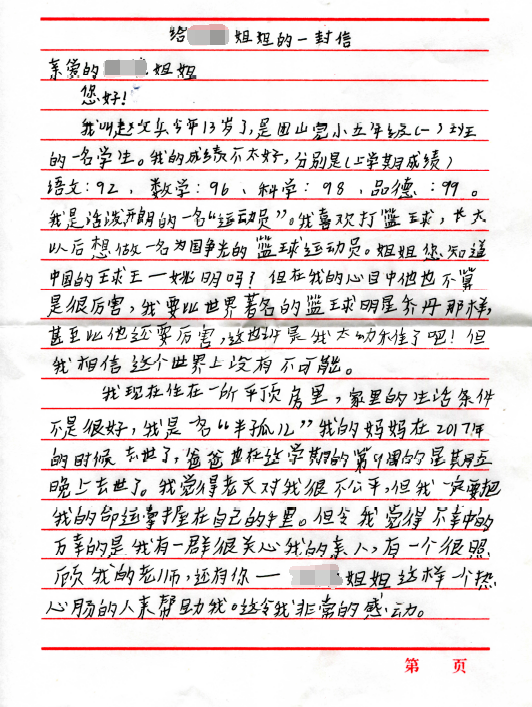 给 姐姐的一封信
亲爱的 姐姐
您好！
我叫赵文乐今年13岁了，是田山完小五年级(一)班
的一名学生。我的成绩不太好，分别是(上学期成绩)
语文：92、数学：96、科学：98、品德：99。
我是活泼开朗的一名“运动员”。我喜欢打篮球，长大
以后想做一名为国争光的篮球运动员。姐姐您知道
中国的球王—姚明吗？但在我的心目中他也不算
是很厉害，我要比世界著名的篮球明星乔丹那样，
甚至比他还要厉害，这也许是我太幼稚了吧！但
我相信这个世界上没有不可能。
我现在住在一所平顶房里，家里的生活条件
不是很好，我是一名“半孤儿”我的妈妈在2017年
的时候去世了，爸爸也在这学期的第9周的星期五
晚上去世了。我觉得老天对我很不公平，但我一定要把
我的命运掌握在自己的手里。但令我觉得不幸中的
万幸的是我有一群很关心我的亲人，有一个很照
顾我的老师，还有你— 姐姐这样一个热
心肠的人来帮助我。这令我非常的感动。
第 页